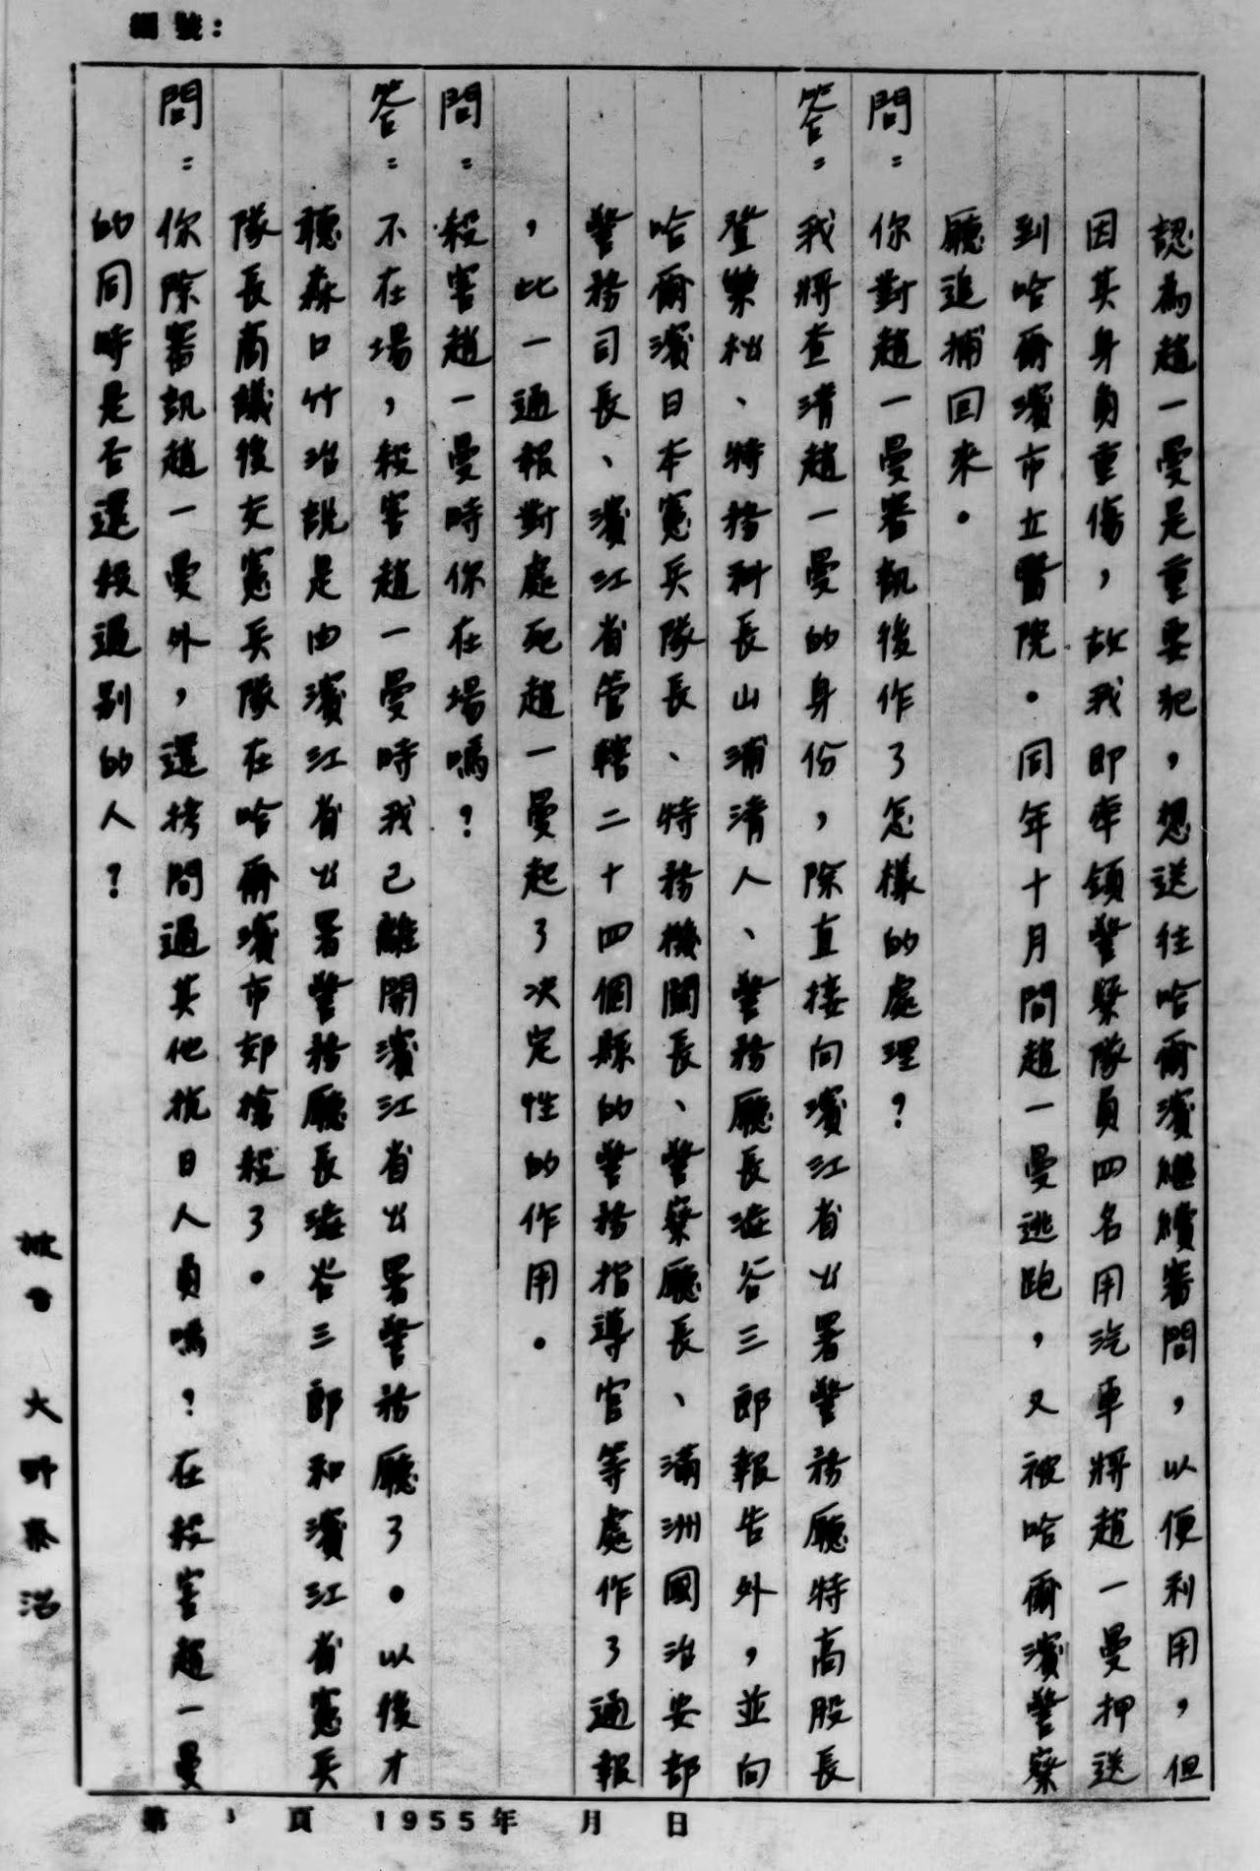 編號:
認為趙一曼是重要犯，想送往哈爾濱繼續審問，以便利用，但
因其身負重傷，故我即率領警察隊員四名用汽車將趙一曼押送
到哈爾濱市立醫院。同年十月間趙一曼逃跑，又被哈爾濱警察
廳追捕回來。
問：你對趙一曼審訊後作了怎樣的處理？
答：我將查清趙一曼的身份，除直接向濱江省公署警務廳特高股長
登樂松、特務科長山浦清人、警務廳長澁谷三郎報告外，並向
哈爾濱日本憲兵隊長、特務機關長、警察廳長、滿洲國治安部
警務司長、濱江省管轄二十四個縣的警務指導官等處作了通報
，此一通報對處死趙一曼起了决定性的作用。
問：殺害趙一曼時你在場嗎？
答：不在場，殺害趙一曼時我已離開濱江省公署警務廳了。以後才
聽森口竹治說是由濱江省公署警務廳長澁谷三郎和濱江省憲兵
隊長商議後交憲兵隊在哈爾濱市郊槍殺了。
問：你除審訊趙一曼外，還拷問過其他抗日人員嗎？在殺害趙一曼
的同時是否還殺過別的人？
被告 大野泰治
第 3 頁 1955年 月 日